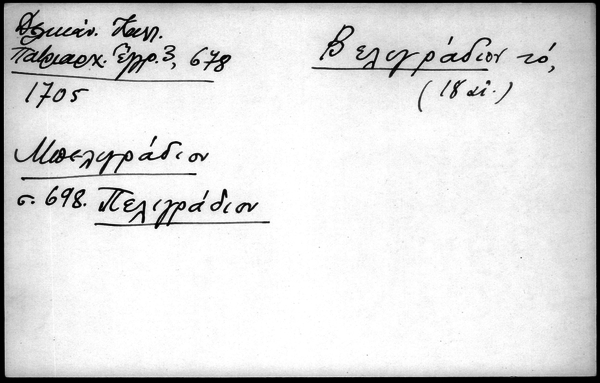 Δελικάν. Καλ.
Πατριαρχ. Ἔγγρ. 3, 678
1705
Βελιγράδιον τό,
(18 αἰ.)
Μπελιγράδιον
σ. 698. Πελιγράδιον